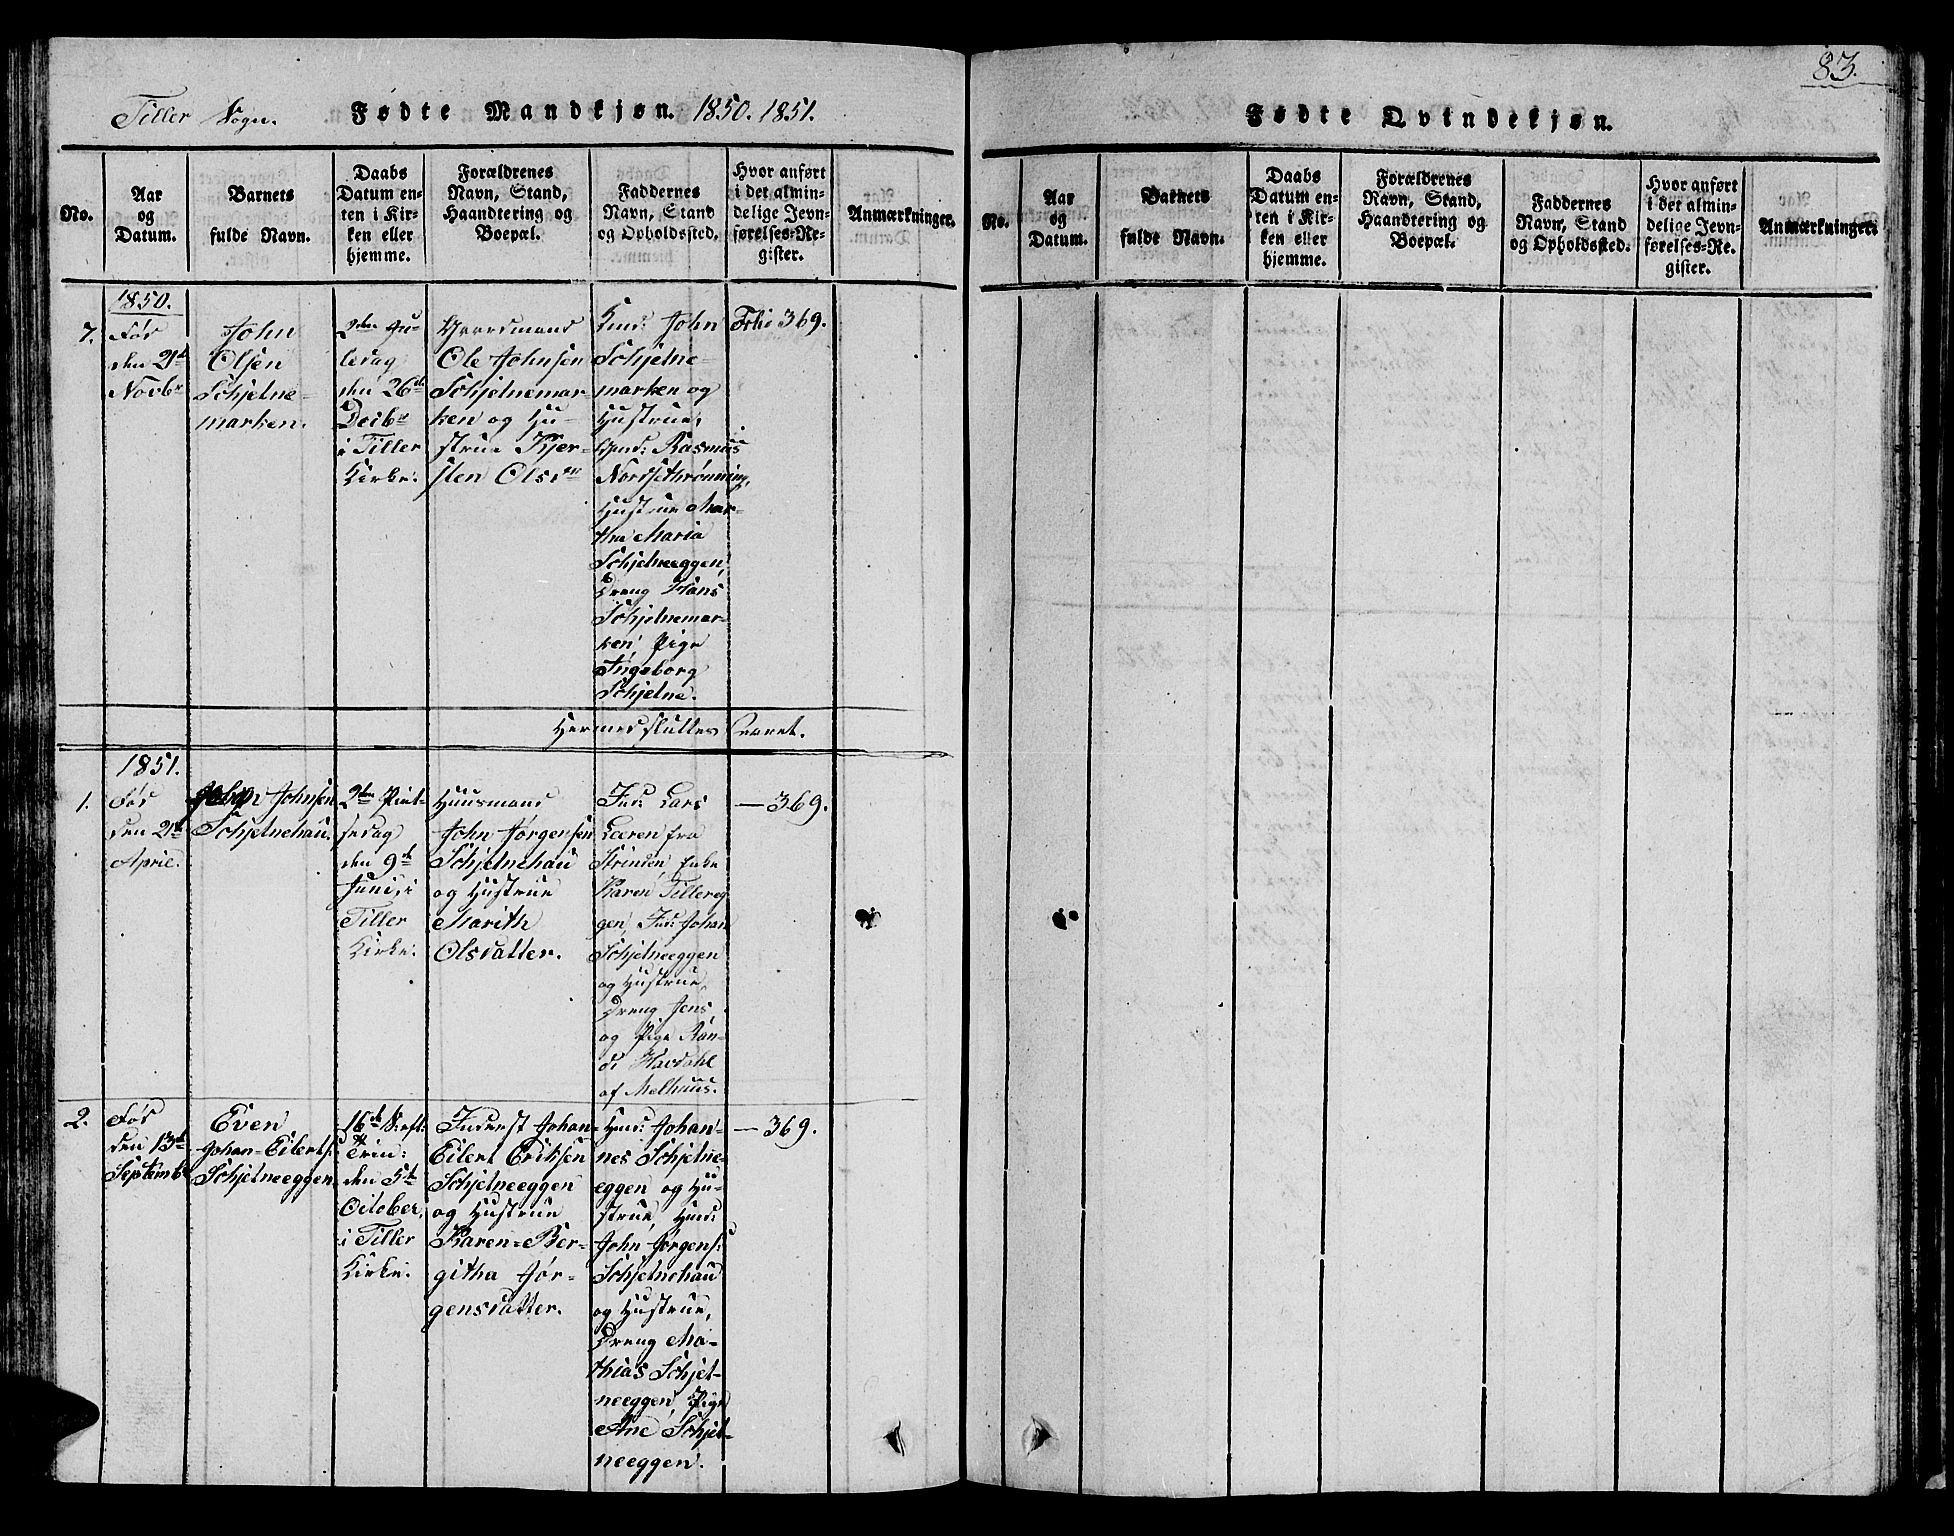 Tiller Sogn. Fødte Mandkjøn. 1850. 1851.
No.
Aar
og
Datum.
Barnets
fulde Navn.
Daabs
Datum en-
ten i Kir-
ken eller
hjemme.
Forældrenes
Navn, Stand,
Haandtering og
Boepæl.
Faddernes
Navn, Stand
og Opholdssted.
Hvor anført
i det almin-
delige Jevn-
førelses-Re-
gister.
Anmærkninger.
1850.
7.
Fød
den 21de
Novbr
John
Olsen
Schjetne-
marken.
2den Ju-
ledag
den 26de
Decbr
i Tiller
Kirke.
Gaardmand
Ole Johnsen
Schjetnemar-
ken og Hu-
strue Kjer-
sten Olsdr
Huusmd: John
Schjetne-
marken og
Hustrue,
Gmd: Rasmus
Nordsethrønning,
Hustrue Mar-
tha Maria
Schjetneeggen,
Dreng Hans
Schjetnemar-
ken, Pige
Ingeborg
Schjetne.
Folio 369.
Hermed sluttes Aaret.
1851.
1.
Fød
den 21de
April.
Johnsen
Schjetnehau.
2den Pint-
sedag
den 9de
Juni, i
Tiller
Kirke.
Huusmand
John Jørgensen
Schjetnehau
og Hustrue
Marith
Olsdatter.
Ind: Lars
Leeren fra
Strinden, Enke
Karen Tillereg
gen, Ind: Johan
Schjetneeggen
og Hustrue,
Dreng Jens,
og Pige Ran-
di Havdahl
af Melhuus.
— 369.
2.
Fød
den 13de
Septembr
Even
Johan-Eilerts:
Schjetneeggen
16de S. eft:
Trin:
den 5te
October,
i Tiller
Kirke.
Inderst Johan
Eilert Eriksen
Schjetneeggen
og Hustrue
Karen-Ber-
githa Jør-
gensdatter.
Hmd: Johan-
nes Schjetne-
eggen og Hu-
strue, Hmd:
John Jørgens:
Schjetnehau
og Hustrue,
Dreng Ma-
thias Schjet-
neeggen, Pige
Ane Schjet-
neeggen.
— 369.
83.
Fødte Qvindekjøn.
No.
Aar
og
Datum.
Barnets
fulde Navn.
Daabs
Datum en-
ten i Kir-
ken eller
hjemme.
Forældrenes
Navn, Stand,
Haandtering og
Boepæl.
Faddernes
Navn, Stand
og Opholdssted.
Hvor anført
i det almin-
delige Jevn-
førelses-Re-
gister.
Anmærkninger.